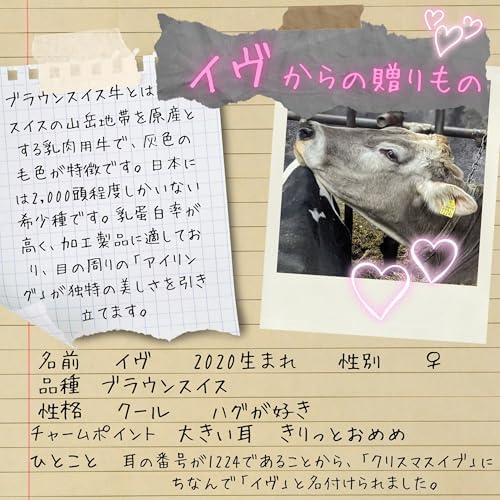 イヴからの贈りもの
ブラウンスイス牛とは
スイスの山岳地帯を原産と
する乳肉用牛で、灰色の
毛色が特徴です。日本に
は2,000頭程度しかいない
希少種です。乳蛋白率が
高く、加工製品に適してお
り、目の周りの「アイリン
グ」が独特の美しさを引き
立てます。
名前 イヴ 2020生まれ 性別 ♀
品種 ブラウンスイス
性格 クール ハグが好き
チャームポイント 大きい耳 きりっとおめめ
ひとこと 耳の番号が1224であることから、「クリスマスイブ」に
ちなんで「イヴ」と名付けられました。